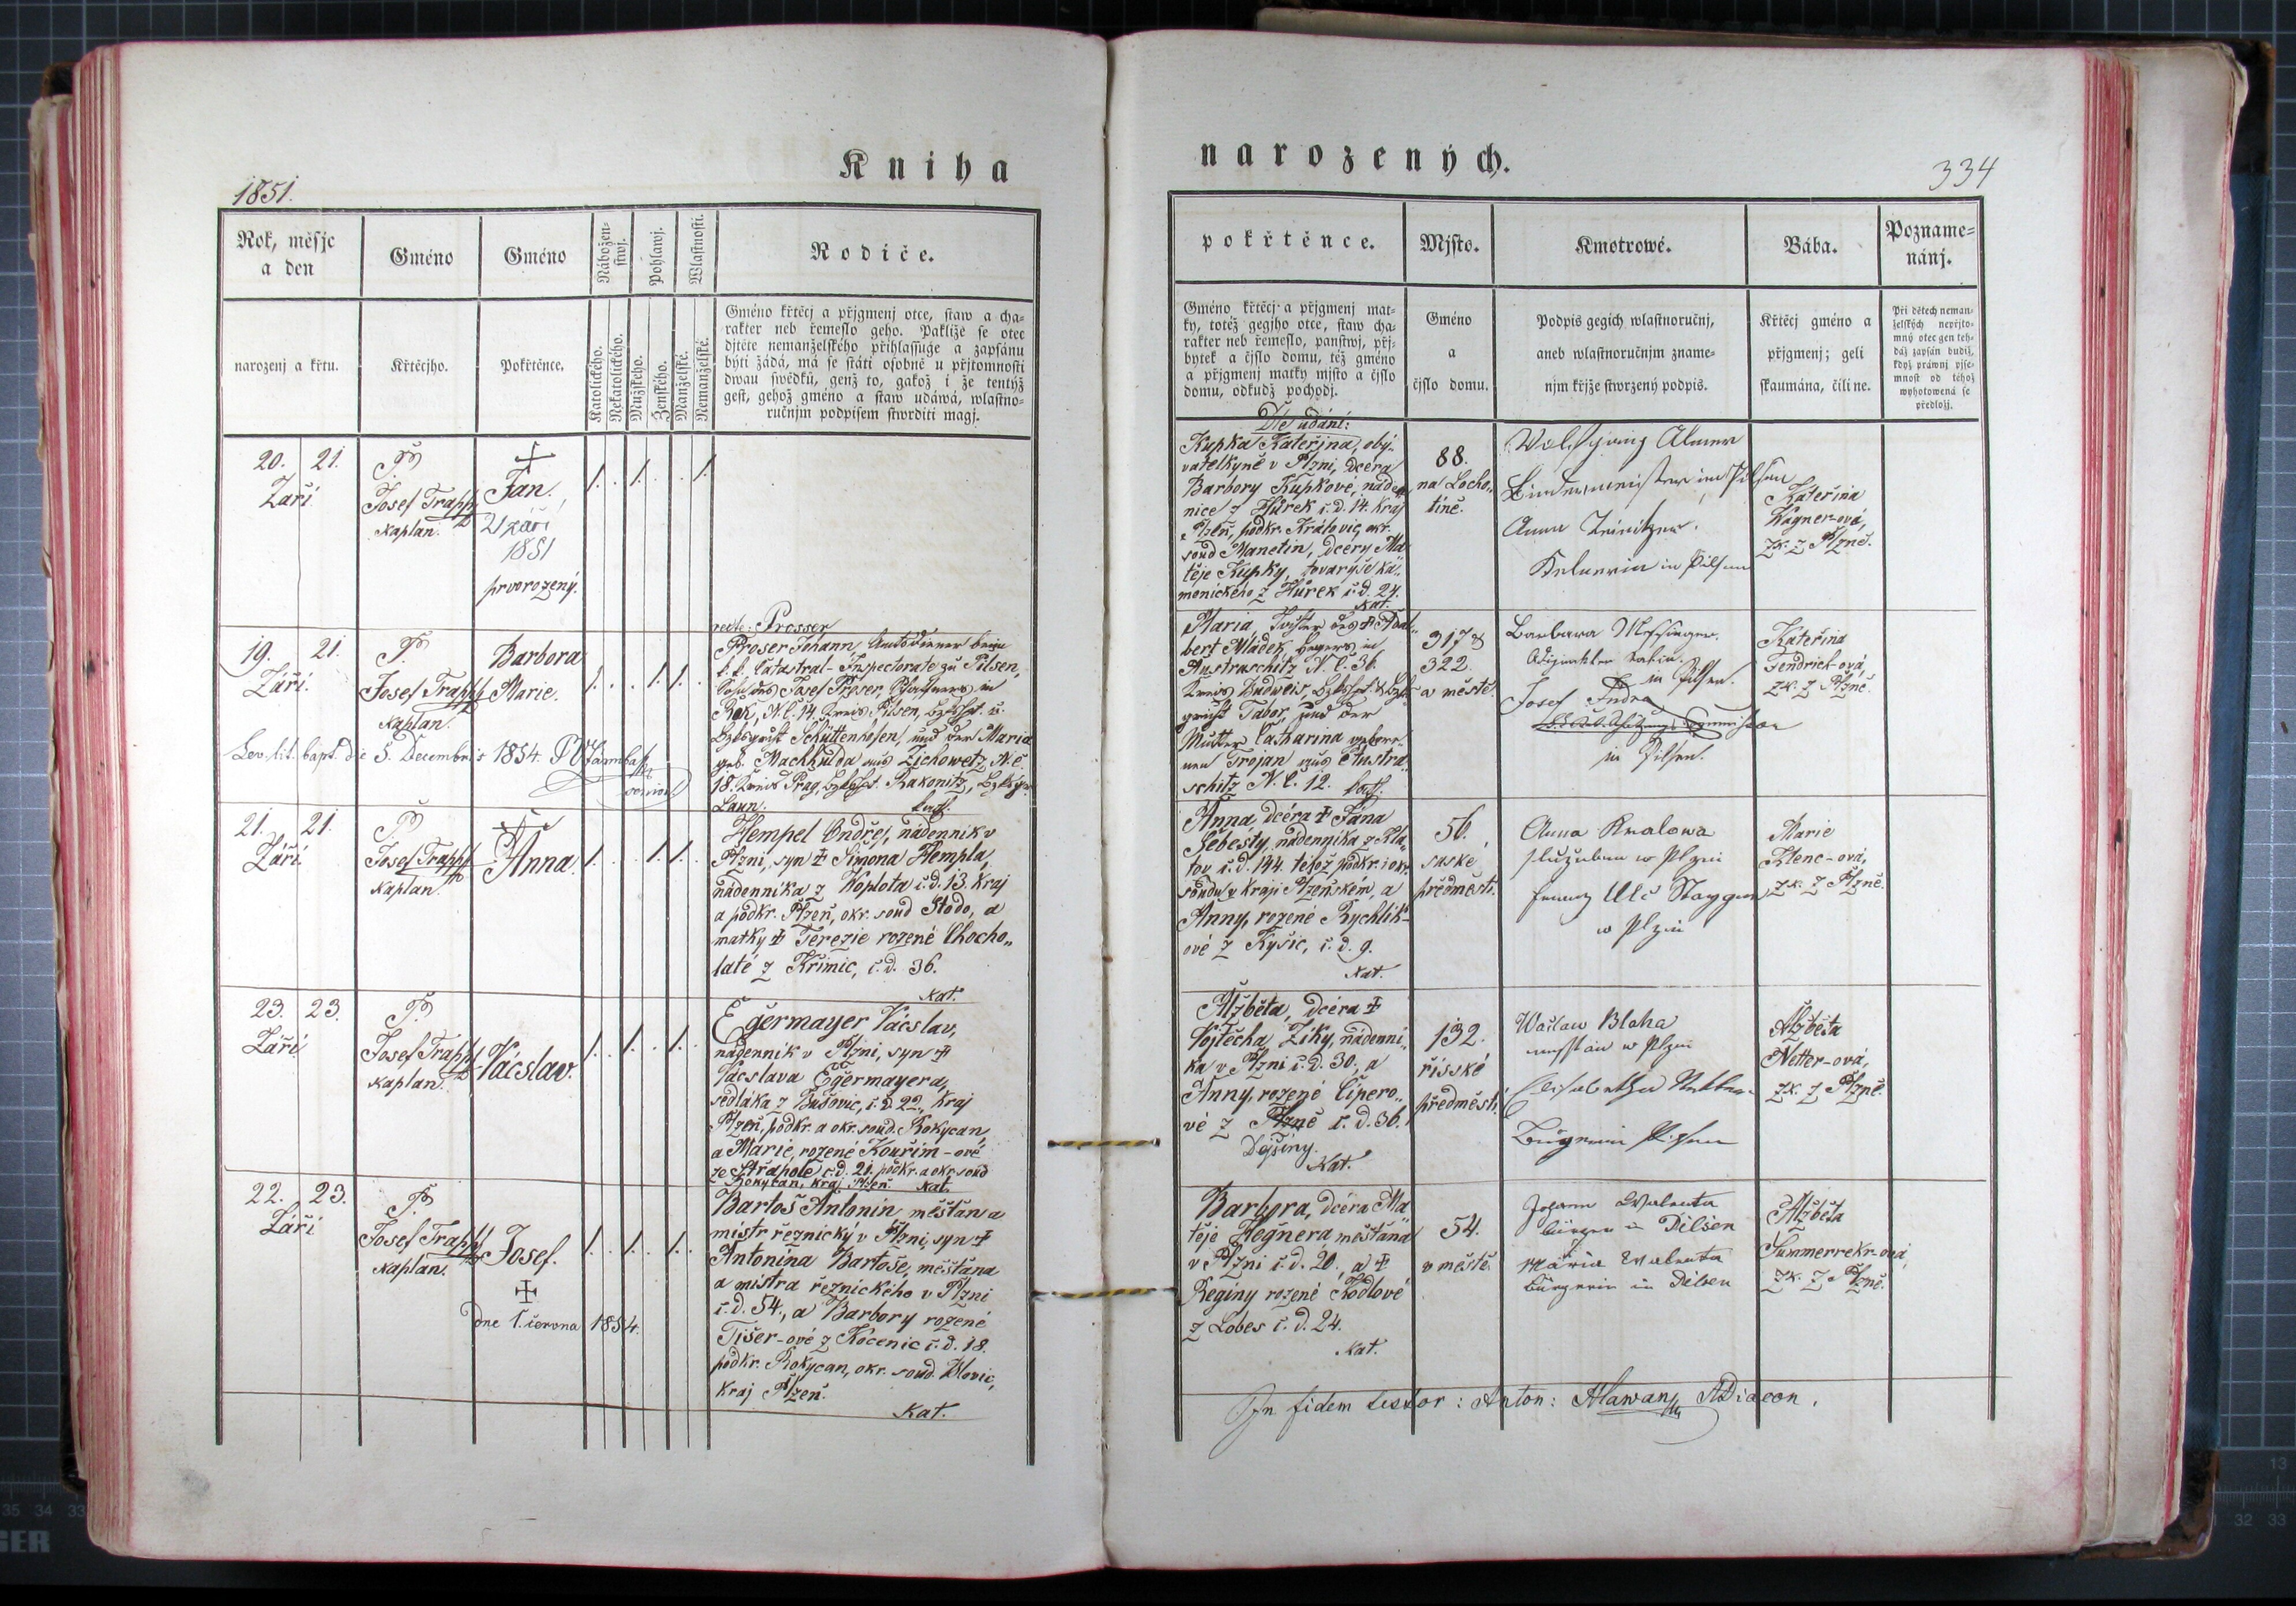 Kniha
narozených.
1851.
334
Rok, měsjc
a den
Gméno
Gméno
Nábožen-
stwj.
Pohlawj.
Wlastnosti.
Rodiče.
narozenj a křtu.
Křtěcjho.
Pokřtěnce.
Katolického.
Nekatolického.
Mužského.
Ženského.
Manželské.
Nemanželské.
Gméno křtěcj a přjgmenj otce, staw a cha-
rakter neb řemeslo geho. Pakliže se otec
djtěte nemanželského přihlassuge a zapsánu
býti žádá, má se státi osobně u přjtomnosti
dwau swědků, genž to, gakož i že tentýž
gest, gehož gméno a staw udáwá, wlastno-
ručnjm podpisem stwrditi magj.
20. 21.
Září
P.
Josef Trapp
kaplan.
Jan.
21 září
1851
prvorozený.
1. . 1. . . 1.
19. 21.
Září.
P.
Josef Trapp
kaplan.
Barbora
Marie.
1. . . 1. 1.
recte: Prosser
Proser Johann, Amtsdiener beim
k. k. Catastral-Inspectorate zu Pilsen,
Sohn des Josef Proser, in
Rok, N.C. 14. Kreis Pilsen,
Schüttenhofen, und der Maria
geb. Machhulda aus Zichowetz, N.C.
18. Kreis Prag, Rakonitz,
Laun. kath.
Lev. lit. bapt. die 5. Decembris 1854.
21. 21.
Září
P.
Josef Trapp
kaplan.
Anna.
1. . . 1. 1.
Hempel Ondřej, nádenník v
Plzni, syn Šimona Hempla,
nádenníka z Woplota č.d. 13. kraj
a podkr. Plzeň, okr. soud Stodo, a
matky Terezie rozené Chocho„
laté z Křimic, č.d. 36.
Kat.
23. 23.
Září
P.
Josef Trapp
kaplan.
Vácslav.
1. . 1. . 1.
Egermayer Vácslav,
nádenník v Plzni, syn
Vácslava Egermayera,
sedláka z Bušovic, č.d. 22, kraj
Plzeň, podkr. a okr. soud. Rokycan,
a Marie, rozené Kouřim-ové
ze Střapole č.d. 21. podkr. a okr. soud
Rokycan, kraj Plzeň. Kat.
22. 23.
Září
P.
Josef Trapp
kaplan.
Josef.
Dne 1. června 1854.
1. . 1. . 1.
Bartoš Antonín měšťan a
mistr řeznický v Plzni, syn
Antonína Bartoše, měšťana
a mistra řeznického v Plzni
č.d. 54., a Barbory rozené
Tišer-ové z Kocenic č.d. 18.
podkr. Rokycan, okr. soud. Blovic,
kraj Plzeň.
Kat.
pokřtěnce.
Mjsto.
Kmotrowé.
Bába.
Pozname-
nánj.
Gméno křtěcj a přjgmenj mat-
ky, totéž gegjho otce, staw cha-
rakter neb řemeslo, panstwj, přj-
bytek a čjslo domu, též gméno
a přjgmenj matky mjsto a čjslo
domu, odkudž pochodj.
Gméno
a
čjslo domu.
Podpis gegich wlastnoručnj,
aneb wlastnoručnjm zname-
njm křjže stwrzený podpis.
Křtěcj gméno a
přjgmenj; geli
skaumána, čili ne.
Při dětech neman-
želských nepřjto-
mný otec gen teh-
dáž zapsán budiž,
když práwnj pjse-
mnost od téhož
wyhotowená se
předložj.
Dle udání:
Kupka Kateřina, oby„
vatelkyně v Plzni, dcera
Barbory Kupkové, náden
nice z Hůrek č.d. 14. kraj
Plzeň, podkr. Králowic, okr.
soud Manetin, dcery Ma
těje Kupky, tovaryše ka„
menického z Hůrek č.d. 24.
Kat.
88.
na Locho„
tíně.
Wolfgang
Bindermeister in Pilsen
Anna
in Pilsen
Kateřina
Wagner-ová,
zk. z Plzně.
Maria Tochter des Adal„
bert Mádek, Hegers in
Austraschitz N.C. 36.
Kreis Budweis,
Tabor, und der
Mutter Catharina gebore„
nen Trojan aus Austra„
schitz N.C. 12. kath.
317 &
322.
v městě
Barbara
in Pilsen.
Josef Andre
in Pilsen.
Kateřina
Fendrich-ová,
zk. z Plzně.
Anna dcéra Jána
Šebesty, nádenníka z Kla„
tov č.d. 144. téhož podkr. i okr.
soudu v kraji Plzeňském, a
Anny, rozené Rychlík-
ové z Kyšic, č.d. 9.
Kat.
56.
saské
předměstí.
Anna Kralowa
w Plzni
w Plzni
Marie
Klenc-ová,
zk. z Plzně.
Alžběta, dcéra
Vojtěcha Ziky, nádenní„
ka v Plzni č.d. 30., a
Anny, rozené Čipero„
vé z Plzně č.d. 36.
Dejšiny.
Kat.
132.
říšské
předměstí.
Waclaw Blaha
w Plzni
Elisabetha Netter
Bürgerin Pilsen
Alžběta
Netter-ová,
zk. z Plzně.
Barbora, dcéra Ma
těje Hegnera měšťana
v Plzni č.d. 20., a
Reginy rozené Kodlové
z Lobes č.d. 24.
Kat.
54.
v městě.
Johann Walenta
Bürger in Pilsen
Maria Walenta
Bürgerin in Pilsen
Alžběta
Summerrekr-ová,
zk. z Plzně.
In fidem testor: Anton: Hlawan ADiacon.